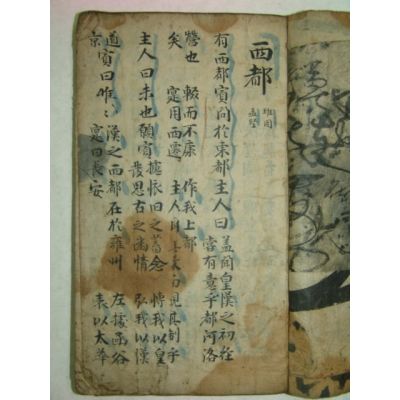 西都
孟堅
有西都賓問於東都主人曰 盖聞皇漢之初經
嘗有意乎都河洛
營也 輟而不康 作我上都
矣 寔用西遷 主人 見其制乎
主人曰未也願賓攄懷旧之蓄念 博我以皇
發思古之幽情 弘我以漢
道賓曰唯〻 漢之西都在於雍州 左據函谷
京 寔曰長安 表以太華